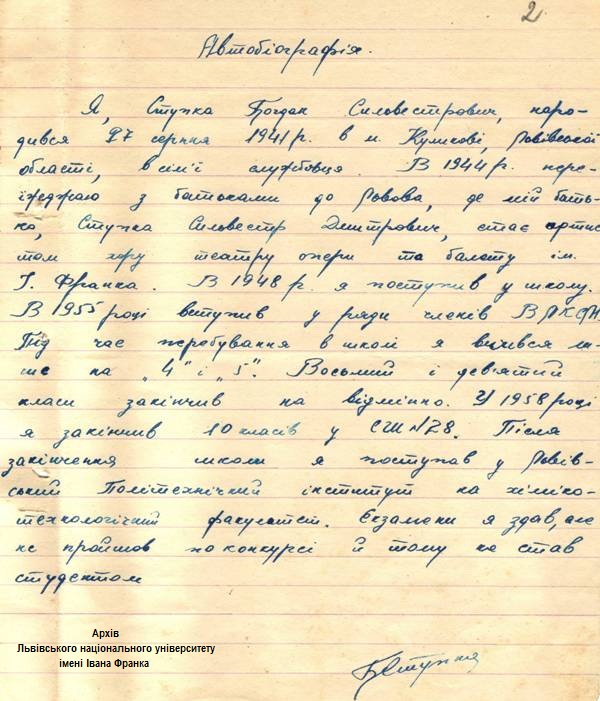 2
Автобіографія.
Я, Ступка Богдан Сильвестрович, наро-
дився 27 серпня 1941 р. в м. Куликові, Львівської
області, в сім'ї службовця. В 1944 р. пере-
їжджаю з батьками до Львова, де мій бать-
ко, Ступка Сильвестр Дмитрович, стає артис
том хору театру опери та балету ім.
І. Франка. В 1948 р. я поступив у школу.
В 1955 році вступив у ряди членів ВЛКСМ.
Під час перебування в школі я вчився ли-
ше на „4" і „5". Восьмий і дев'ятий
класи закінчив на відмінно. У 1958 році
я закінчив 10 класів у СШ №28. Після
закінчення школи я поступав у Львів-
ський Політехнічний інститут на хіміко-
технологічний факультет. Екзамени я здав, але
не пройшов по конкурсі й тому не став
студентом
БСтупка
Архів
Львівського національного університету
імені Івана Франка